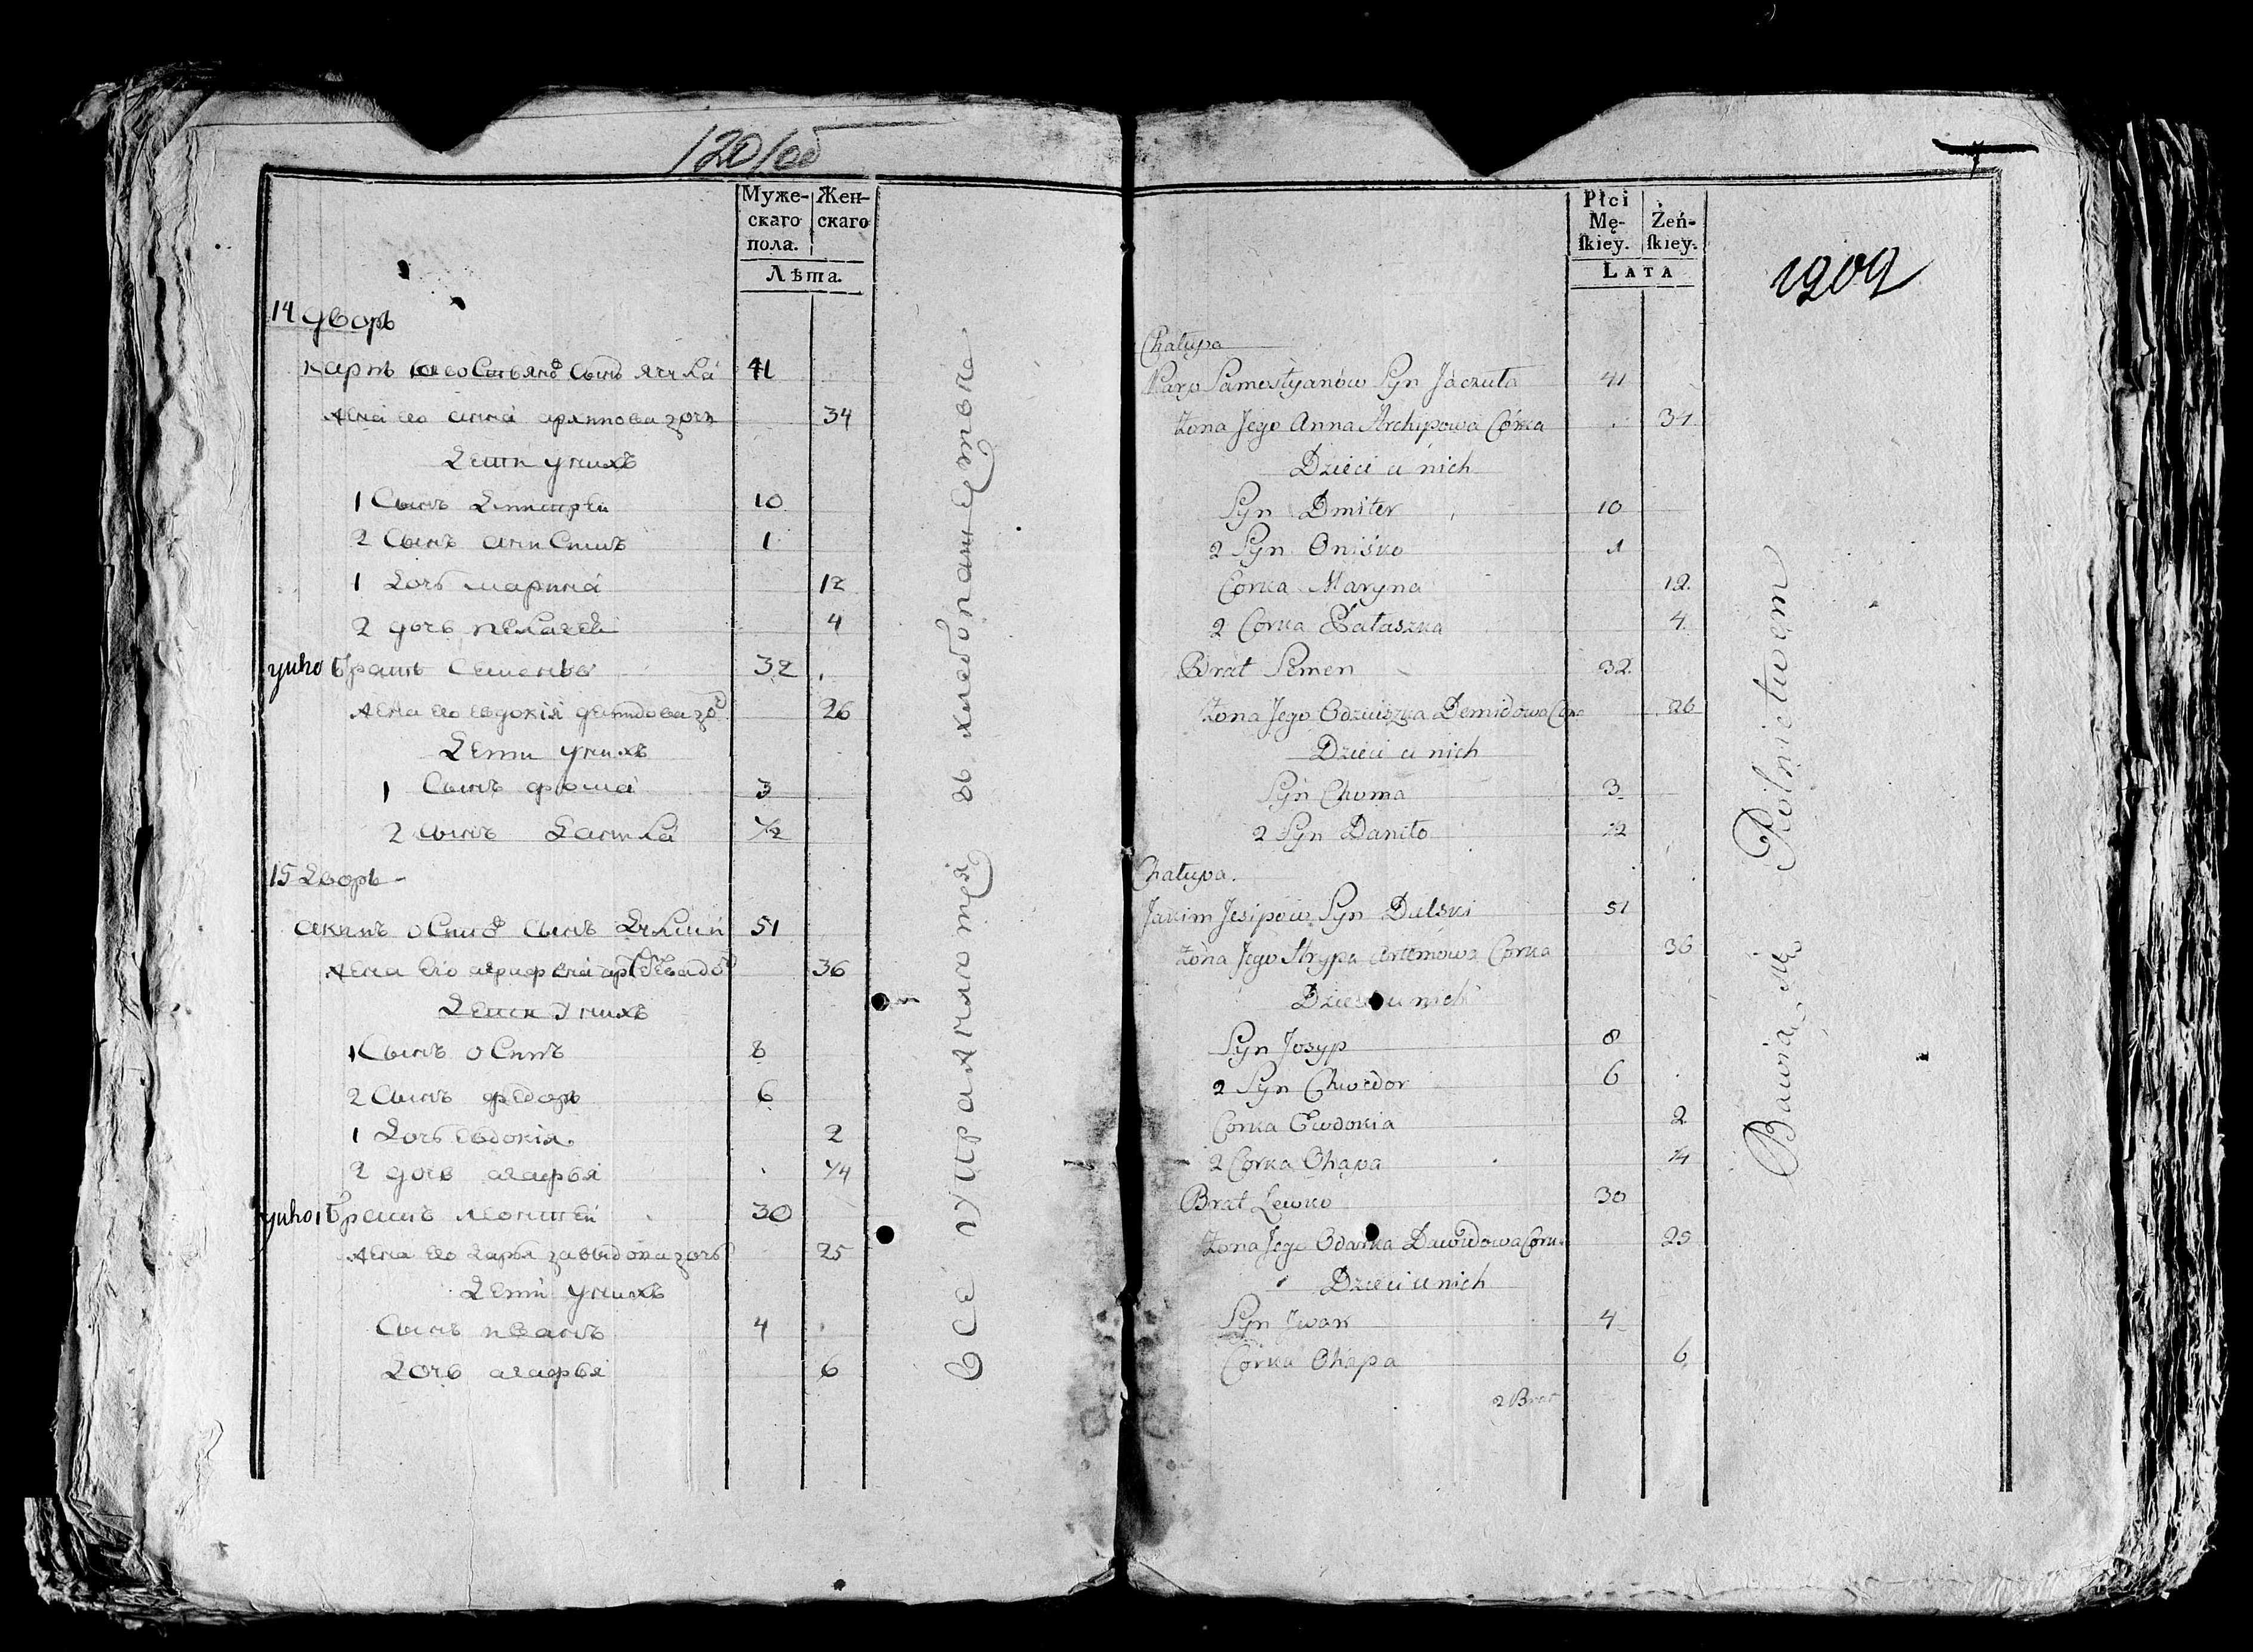 120/об
Муже- Жен-
скаго скаго
пола.
Лѣта.
14 дворъ
карпъ сынъ 41
жена ево анна архипова дочь 34
Дети у нихъ
1 Сынъ Дмитрей 10
2 Сынъ анисимъ 1
1 Дочь марина 12
2 дочь пелагея 4
у нихъ братъ Семенъ 32
жена ево евдокія демидова до 26
Дети у нихъ
1 Сынъ фома 3
2 сынъ Данила 1/2
15 Дворъ
акимъ осипо сынъ 51
жена ево агрифена 36
Дети у нихъ
1 Сынъ осипъ 8
2 Сынъ федоръ 6
1 Дочь евдокія 2
2 дочь агафья 1/4
братъ леонтей 30
жена ево дарья давыдова дочь 25
Дети у нихъ
Сынъ иванъ 4
Дочь агафья 6
все упражняются въ хлебопашестве
Płci
Mę- Żeń-
ſkiey. ſkiey.
LATA
1909
Chałupa
Karp Samostyanów Syn Jaczuła 41
Żona Jego Anna Archipowa Córka 34
Dzieci u nich
Syn Dmiter 10
2 Syn Oniśko 1
Corka Maryna 12
2 Corka Pałaszka 4
Brat Semen 32
Żona Jego Demidowa 26
Dzieci u nich
Syn Choma 3
2 Syn Daniło 1/2
Chałupa.
Jakim Jesipow Syn Dulski 51
Żona Jego Hrypa Artemowa Corka 36
Dzieci u nich
Syn Josyp 8
2 Syn Chwedor 6
Corka Ewdokia 2
2 Corka Ohapa 1/4
Brat Lewko 30
Żona Jego Odarka Dawidowa Cork 25
Dzieci u nich
Syn Jwan 4
Córka Ohapa 6
2 Brat
Bawią się Rolnictwem